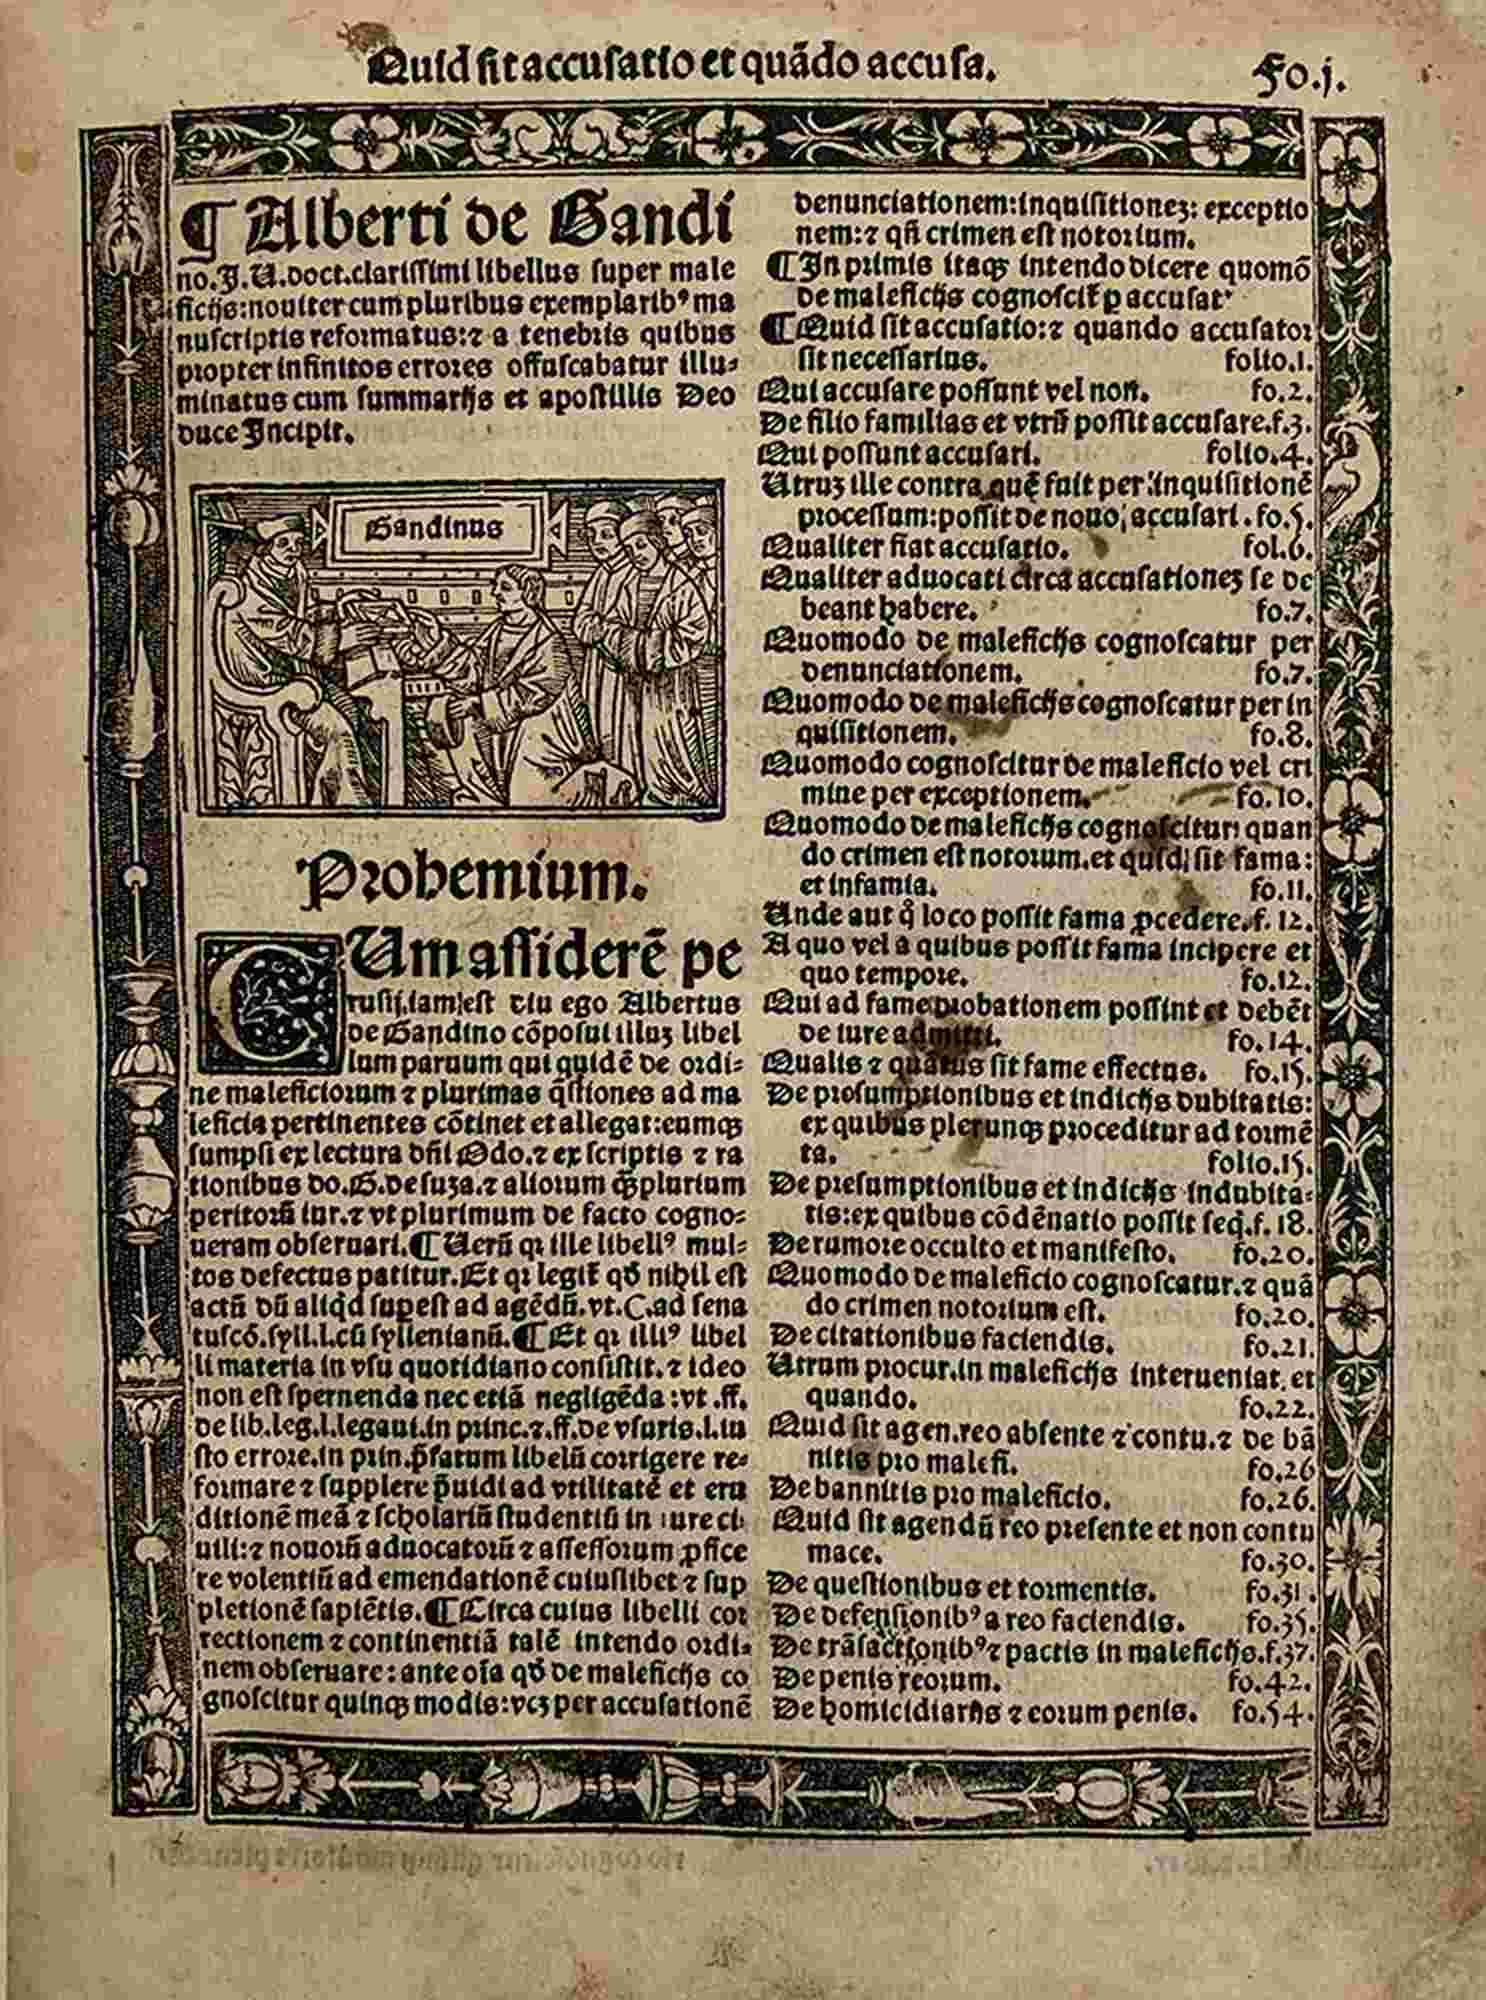 Quid sit accusatio et quãdo accusa.
Fo.j.
¶ Alberti de Gandi
no.J.U.doct.clarissimi libellus super male
ficijs:nouiter cum pluribus exemplarib⁹ ma
nuscriptis reformatus:⁊ a tenebris quibus
propter infinitos errores offuscabatur illu-
minatus cum summarijs et apostillis Deo
duce Incipit.
Gandinus
Prohemium.
CUm assiderẽ pe
rusij.iam est diu ego Albertus
de Gandino cõposui illuʒ libel
lum paruum qui quidẽ de ordi-
ne maleficiorum ⁊ plurimas q̃stiones ad ma
leficia pertinentes cõtinet et allegat:eumqʒ
sumpsi ex lectura dñi Odo.⁊ ex scriptis ⁊ ra
tionibus do.G.de suza.⁊ aliorum q̃plurium
peritorũ iur.⁊ vt plurimum de facto cogno-
ueram obseruari.¶ Uerũ qꝛ ille libell⁹ mul-
tos defectus patitur.Et qꝛ legit᷑ qđ nihil est
actũ dũ aliq̇d suꝑest ad agẽdũ.vt.C.ad sena
tuscõ.syll.l.cũ syllenianũ.¶ Et qꝛ illi⁹ libel
li materia in vsu quotidiano consistit.⁊ ideo
non est spernenda nec etiã negligẽda:vt.ff.
de lib.leg.l.legaui.in princ.⁊.ff.de vsuris.l.iu
sto errore.in prin.p̃fatum libelũ corrigere re-
formare ⁊ supplere p̃uidi ad vtilitatẽ et eru
ditionẽ meã ⁊ scholariũ studentiũ in iure ci-
uili:⁊ nouorũ aduocatorũ ⁊ assessorum ꝓfice
re volentiũ ad emendationẽ cuiuslibet ⁊ sup
pletionẽ sapiẽtis.¶ Circa cuius libelli cor
rectionem ⁊ continentiã talẽ intendo ordi-
nem obseruare:ante oĩa qđ de maleficijs co
gnoscitur quinqʒ modis:vcʒ per accusationẽ
denunciationem:inquisitioneʒ: exceptio
nem:⁊ qñ crimen est notorium.
¶ In primis itaqʒ intendo dicere quomõ
de maleficijs cognoscit᷑ ꝑ accusat᷑
¶ Quid sit accusatio:⁊ quando accusator
sit necessarius. folio.1.
Qui accusare possunt vel non. fo.2.
De filio familias et vtrũ possit accusare.f.3.
Qui possunt accusari. folio.4.
Utruʒ ille contra quẽ fuit per inquisitionẽ
processum:possit de nouo accusari. fo.5.
Qualiter fiat accusatio. fol.6.
Qualiter aduocati circa accusationeʒ se de
beant habere. fo.7.
Quomodo de maleficijs cognoscatur per
denunciationem. fo.7.
Quomodo de maleficijs cognoscatur per in
quisitionem. fo.8.
Quomodo cognoscitur de maleficio vel cri
mine per exceptionem. fo.10.
Quomodo de maleficijs cognoscitur: quan
do crimen est notorum.et quid sit fama:
et infamia. fo.11.
Unde aut q̊ loco possit fama ꝓcedere.f. 12.
A quo vel a quibus possit fama incipere et
quo tempore. fo.12.
Qui ad fame probationem possint et debẽt
de iure admitti. fo.14.
Qualis ⁊ quãtus sit fame effectus. fo.15.
De presumptionibus et indicijs dubitatis:
ex quibus plerunqʒ proceditur ad tormẽ
ta. folio.15.
De presumptionibus et indicijs indubita-
tis:ex quibus cõdẽnatio possit seq̃.f. 18.
De rumore occulto et manifesto. fo.20.
Quomodo de maleficio cognoscatur.⁊ quã
do crimen notorium est. fo.20.
De citationibus faciendis. fo.21.
Utrum procur.in maleficijs interueniat.et
quando. fo.22.
Quid sit agen.reo absente ⁊ contu.⁊ de bã
nitis pro malefi. fo.26
De bannitis pro maleficio. fo.26.
Quid sit agendũ reo presente et non contu
mace. fo.30.
De questionibus et tormentis. fo.31.
De defensionib⁹ a reo faciendis. fo.35.
De trãsactionib⁹ ⁊ pactis in maleficijs.f.37.
De penis reorum. fo.42.
De homicidiarijs ⁊ eorum penis. fo.54.